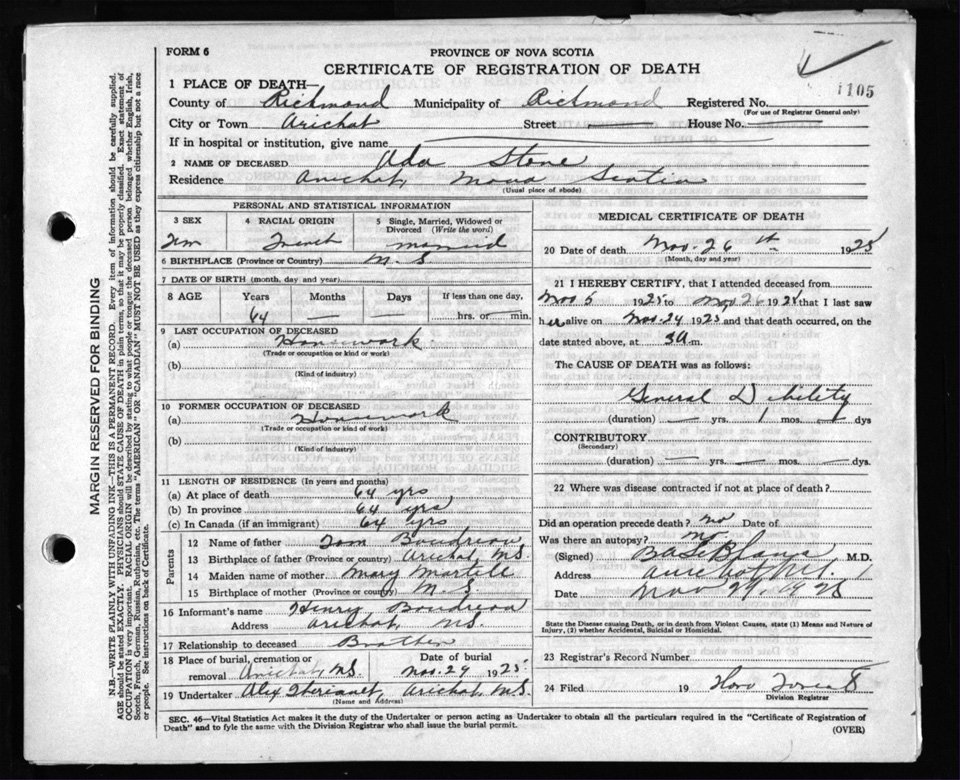 FORM 6
PROVINCE OF NOVA SCOTIA
CERTIFICATE OF REGISTRATION OF DEATH
1105
1 PLACE OF DEATH—
County of Richmond Municipality of Richmond Registered No.
(For use of Registrar General only)
City or Town Arichat Street House No.
If in hospital or institution, give name
2 NAME OF DECEASED Ada Stone
Residence Arichat, Nova Scotia
(Usual place of abode)
PERSONAL AND STATISTICAL INFORMATION
3 SEX 4 RACIAL ORIGIN 5 Single, Married, Widowed or Divorced (Write the word)
Fem French married
6 BIRTHPLACE (Province or Country) N. S
7 DATE OF BIRTH (month, day, and year)
8 AGE Years Months Days If less than one day,
64 — — hrs. or min.
9 LAST OCCUPATION OF DECEASED
(a) Housework
(Trade or occupation or kind or work)
(b)
(Kind of industry)
10 FORMER OCCUPATION OF DECEASED
(a) Housework
(Trade or occupation or kind of work)
(b)
(Kind of industry)
11 LENGTH OF RESIDENCE (In years and months)
(a) At place of death 64 yrs
(b) In province 64 yrs
(c) In Canada (if an immigrant) 64 yrs
Parents
12 Name of father Tom Boudreau
13 Birthplace of father (Province or country) Arichat, N.S.
14 Maiden name of mother Mary Martell
15 Birthplace of mother (Province or country) N. S.
16 Informant's name Henry Boudreau
Address Arichat, N.S.
17 Relationship to deceased Brother
18 Place of burial, cremation or removal Arichat, N.S. Date of burial Nov. 29 1925
19 Undertaker Alex Theriault, Arichat, N.S.
(Name and Address)
MEDICAL CERTIFICATE OF DEATH
20 Date of death Nov. 26th 1925
(Month, day and year)
21 I HEREBY CERTIFY, that I attended deceased from
Nov 5 1925 to Nov 26 1925 that I last saw
her alive on Nov. 24 1925 and that death occurred, on the
date stated above, at 3 a.m.
The CAUSE OF DEATH was as follows:
General Debility
(duration) — yrs. 1 mos. — dys
CONTRIBUTORY
(Secondary)
(duration) — yrs. — mos. — dys.
22 Where was disease contracted if not at place of death?
Did an operation precede death? no Date of
Was there an autopsy? no
(Signed) B A LeBlanc M.D.
Address Arichat N.S.
Date Nov 27, 1925
State the Disease causing Death, or in death from Violent Causes, state (1) Means and Nature of
Injury, (2) whether Accidental, Suicidal or Homicidal.
23 Registrar's Record Number
24 Filed 19
Division Registrar
SEC. 46—Vital Statistics Act makes it the duty of the Undertaker or person acting as Undertaker to obtain all the particulars required in the "Certificate of Registration of
Death" and to fyle the same with the Division Registrar who shall issue the burial permit.
(OVER)
MARGIN RESERVED FOR BINDING
N.B.—WRITE PLAINLY WITH UNFADING INK—THIS IS A PERMANENT RECORD. Every item of information should be carefully supplied.
AGE should be stated EXACTLY. PHYSICIANS should STATE CAUSE OF DEATH in plain terms, so that it may be properly classified. Exact statement of
OCCUPATION is very important. RACIAL ORIGIN will be described by stating to what people or tongue the deceased person belonged whether English, Irish,
Scotch, French, German, Russian, Ruthenian, etc. The terms "AMERICAN" OR "CANADIAN" MUST NOT BE USED as they express citizenship but not a race
or people. See instructions on back of Certificate.